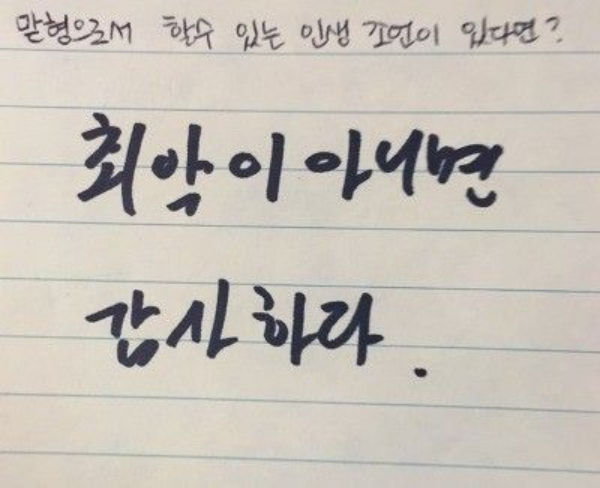 맏형으로서 할수 있는 인생 조언이 있다면?
최악이 아니면
감사하라.